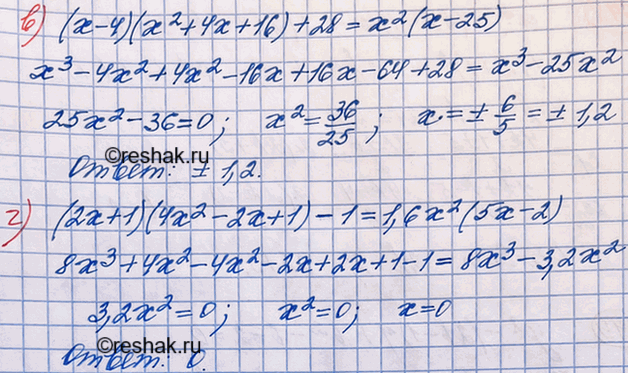 в) (x-4)(x²+4x+16)+28=x²(x-25)
x³-4x²+4x²-16x+16x-64+28=x³-25x²
25x²-36=0; x²=36/25; x=±6/5=±1,2
©reshak.ru
Ответ: ±1,2.
г) (2x+1)(4x²-2x+1)-1=1,6x²(5x-2)
8x³+4x²-4x²-2x+2x+1-1=8x³-3,2x²
3,2x²=0; x²=0; x=0
©reshak.ru
Ответ: 0.